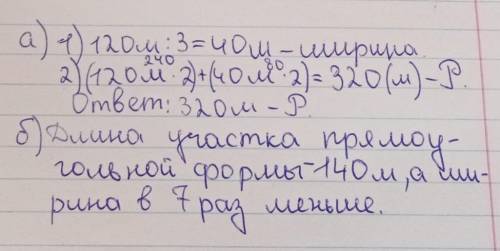 а) 1) 120м : 3 = 40м – ширина.
240 80
2) (120м · 2) + (40м · 2) = 320 (м) – Р.
Ответ: 320м – Р.
б) Длина участка прямоу-
гольной формы – 140м, а ши-
рина в 7 раз меньше.